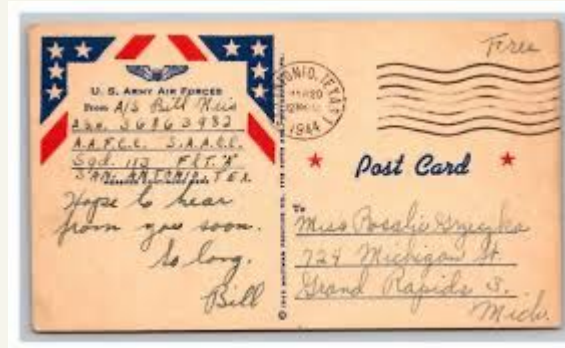 U. S. ARMY AIR FORCES
From A/S Bill
A.S.N. 36863982
A.A.F.C.C. S.A.A.C.C.
Sqd. 112 FLT. "A"
SAN ANTONIO, TEX.
Hope to hear
from you soon.
So long.
Bill
ONIO, TEXAS
1944
Free
Post Card
To
Miss Rosalie
724 Michigan St.
Grand Rapids 3.
Mich.